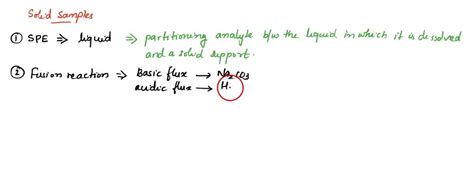 Solid Samples
① SPE ⇒ liquid ⇒ partitioning analyte b/w the liquid in which it is dissolved
and a solid support.
② Fusion reaction ⇒ Basic flux → Na₂CO₃
acidic flux → H.